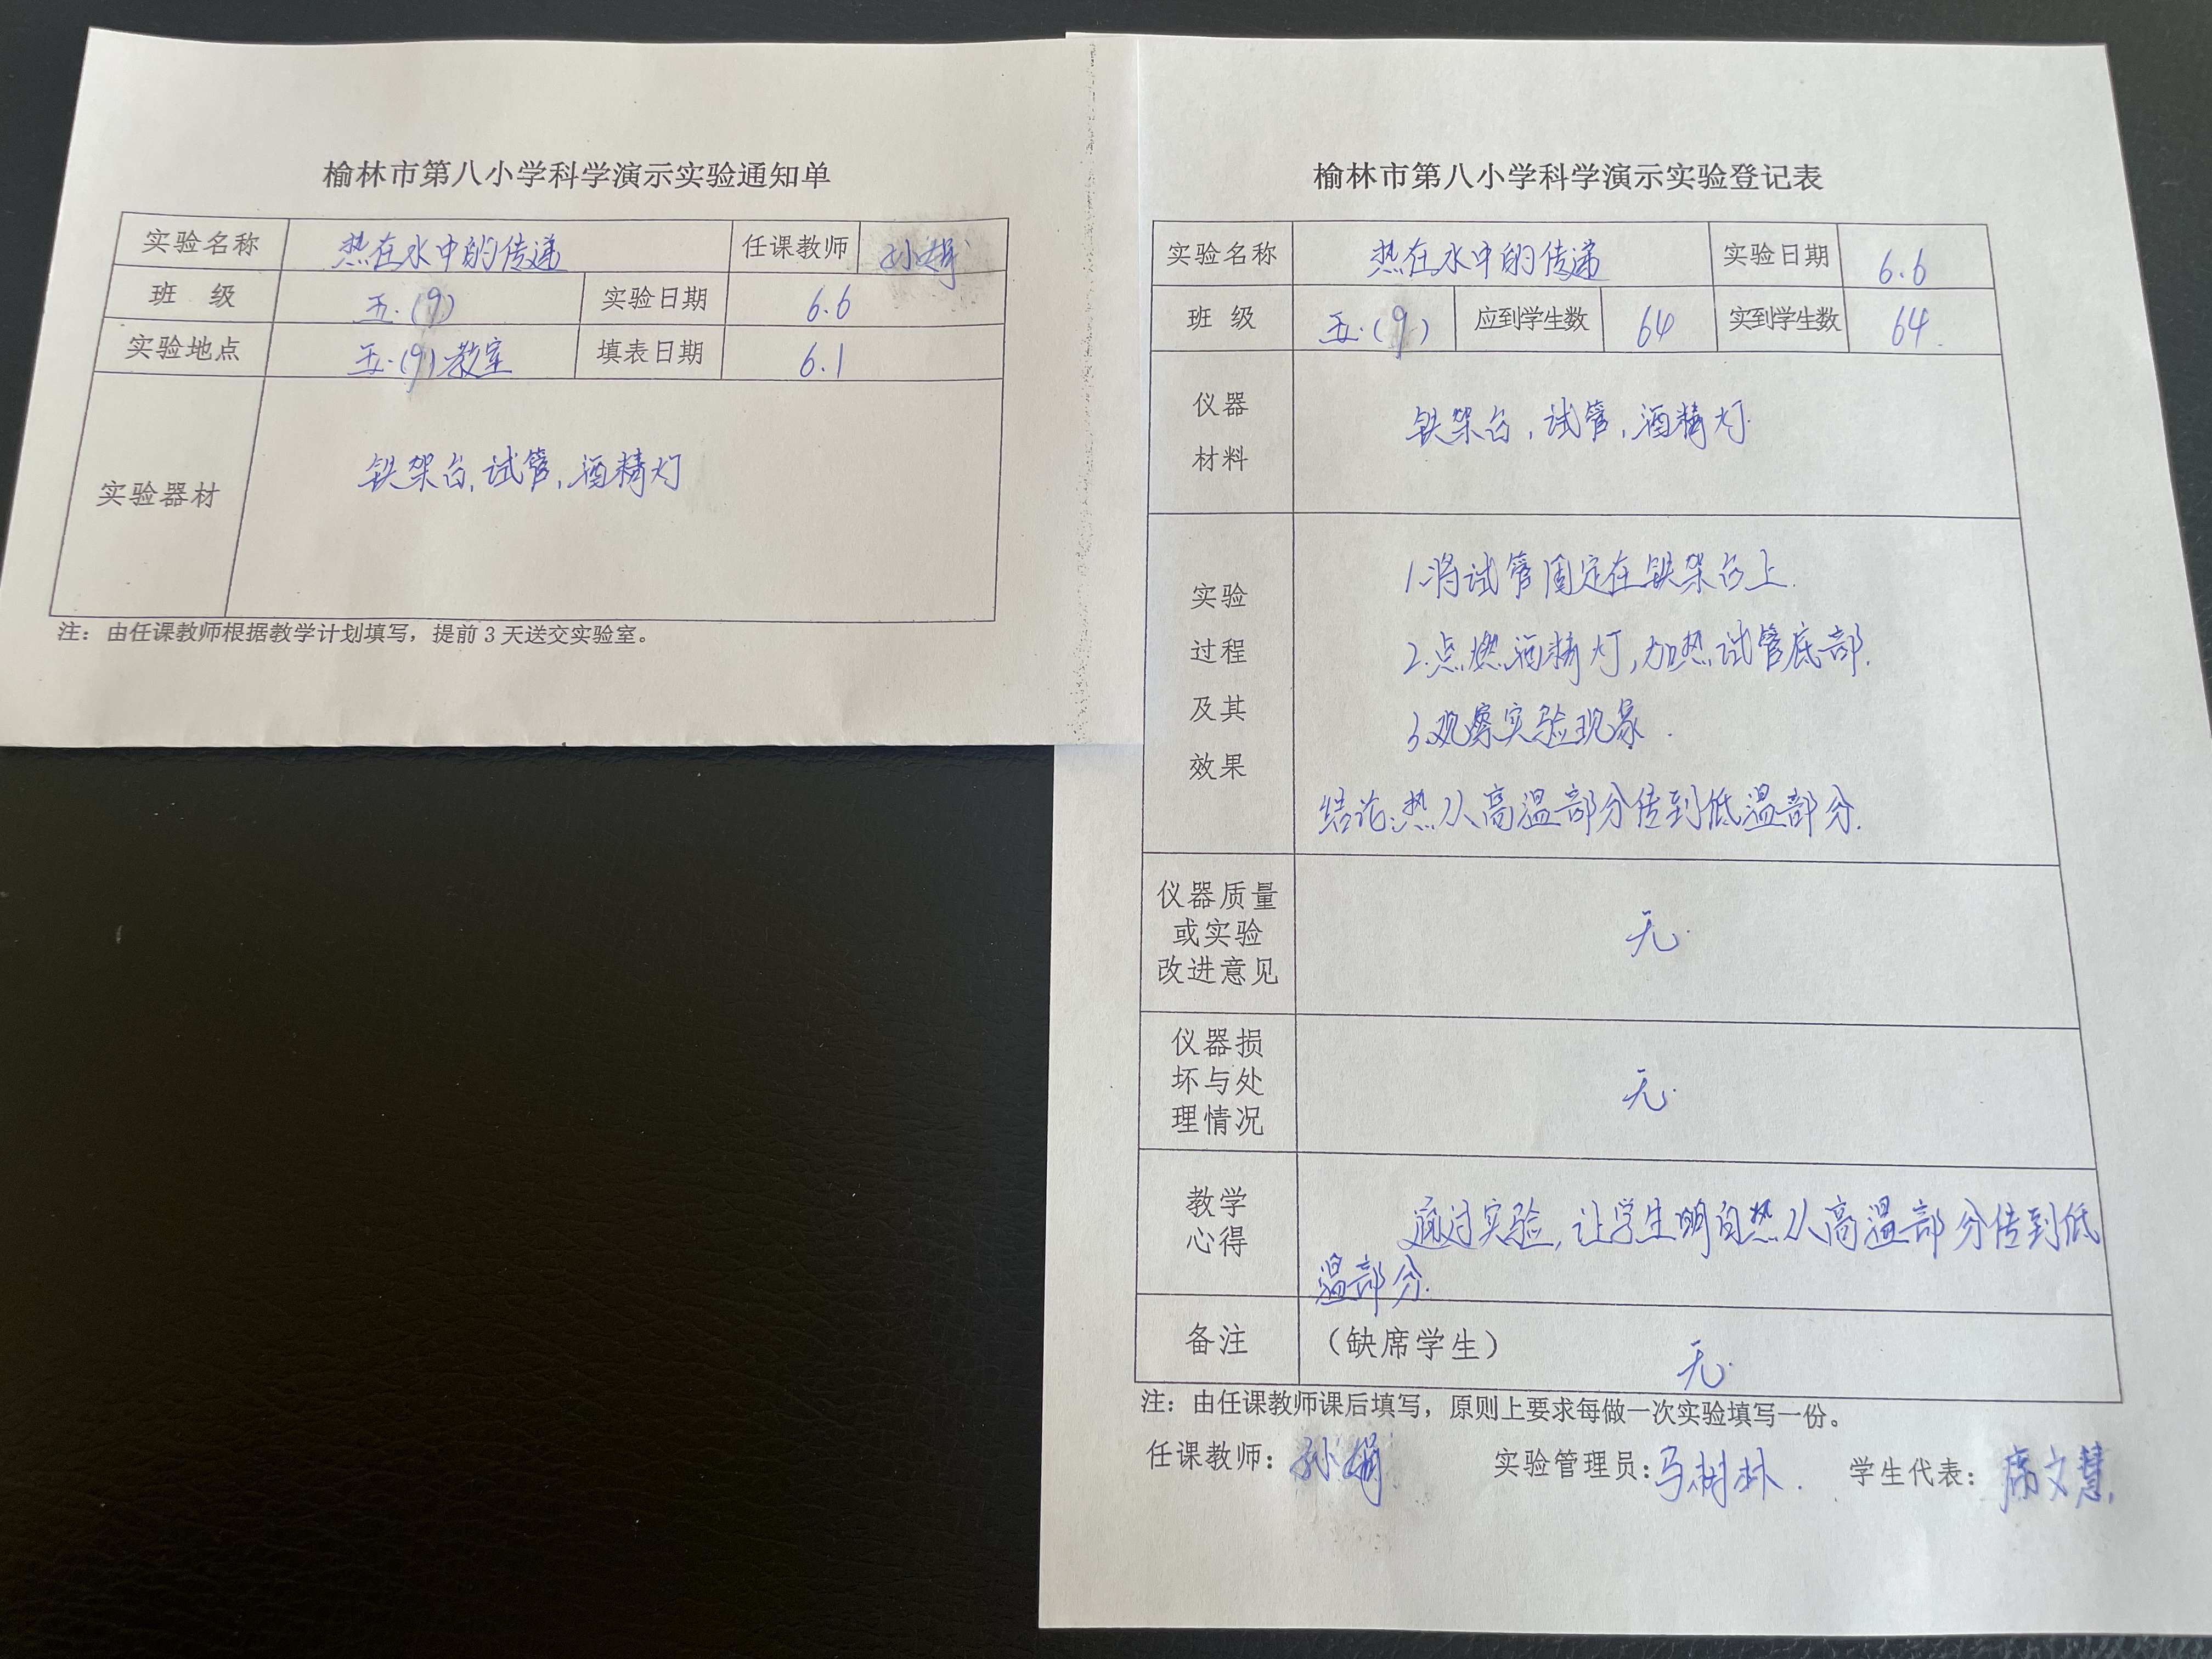 榆林市第八小学科学演示实验通知单
实验名称 热在水中的传递 任课教师 孙娟
班 级 五.(9) 实验日期 6.6
实验地点 五.(9)教室 填表日期 6.1
实验器材 铁架台,试管,酒精灯
注：由任课教师根据教学计划填写，提前3天送交实验室。
榆林市第八小学科学演示实验登记表
实验名称 热在水中的传递 实验日期 6.6
班 级 五.(9) 应到学生数 64 实到学生数 64.
仪器
材料
铁架台,试管,酒精灯.
实验
过程
及其
效果
1.将试管固定在铁架台上.
2.点燃酒精灯,加热试管底部.
3.观察实验现象.
结论:热从高温部分传到低温部分.
仪器质量
或实验
改进意见
无.
仪器损
坏与处
理情况
无.
教学
心得
通过实验,让学生明白热从高温部分传到低
温部分.
备注 （缺席学生） 无.
注：由任课教师课后填写，原则上要求每做一次实验填写一份。
任课教师：孙娟 实验管理员：马树林. 学生代表：席文慧.